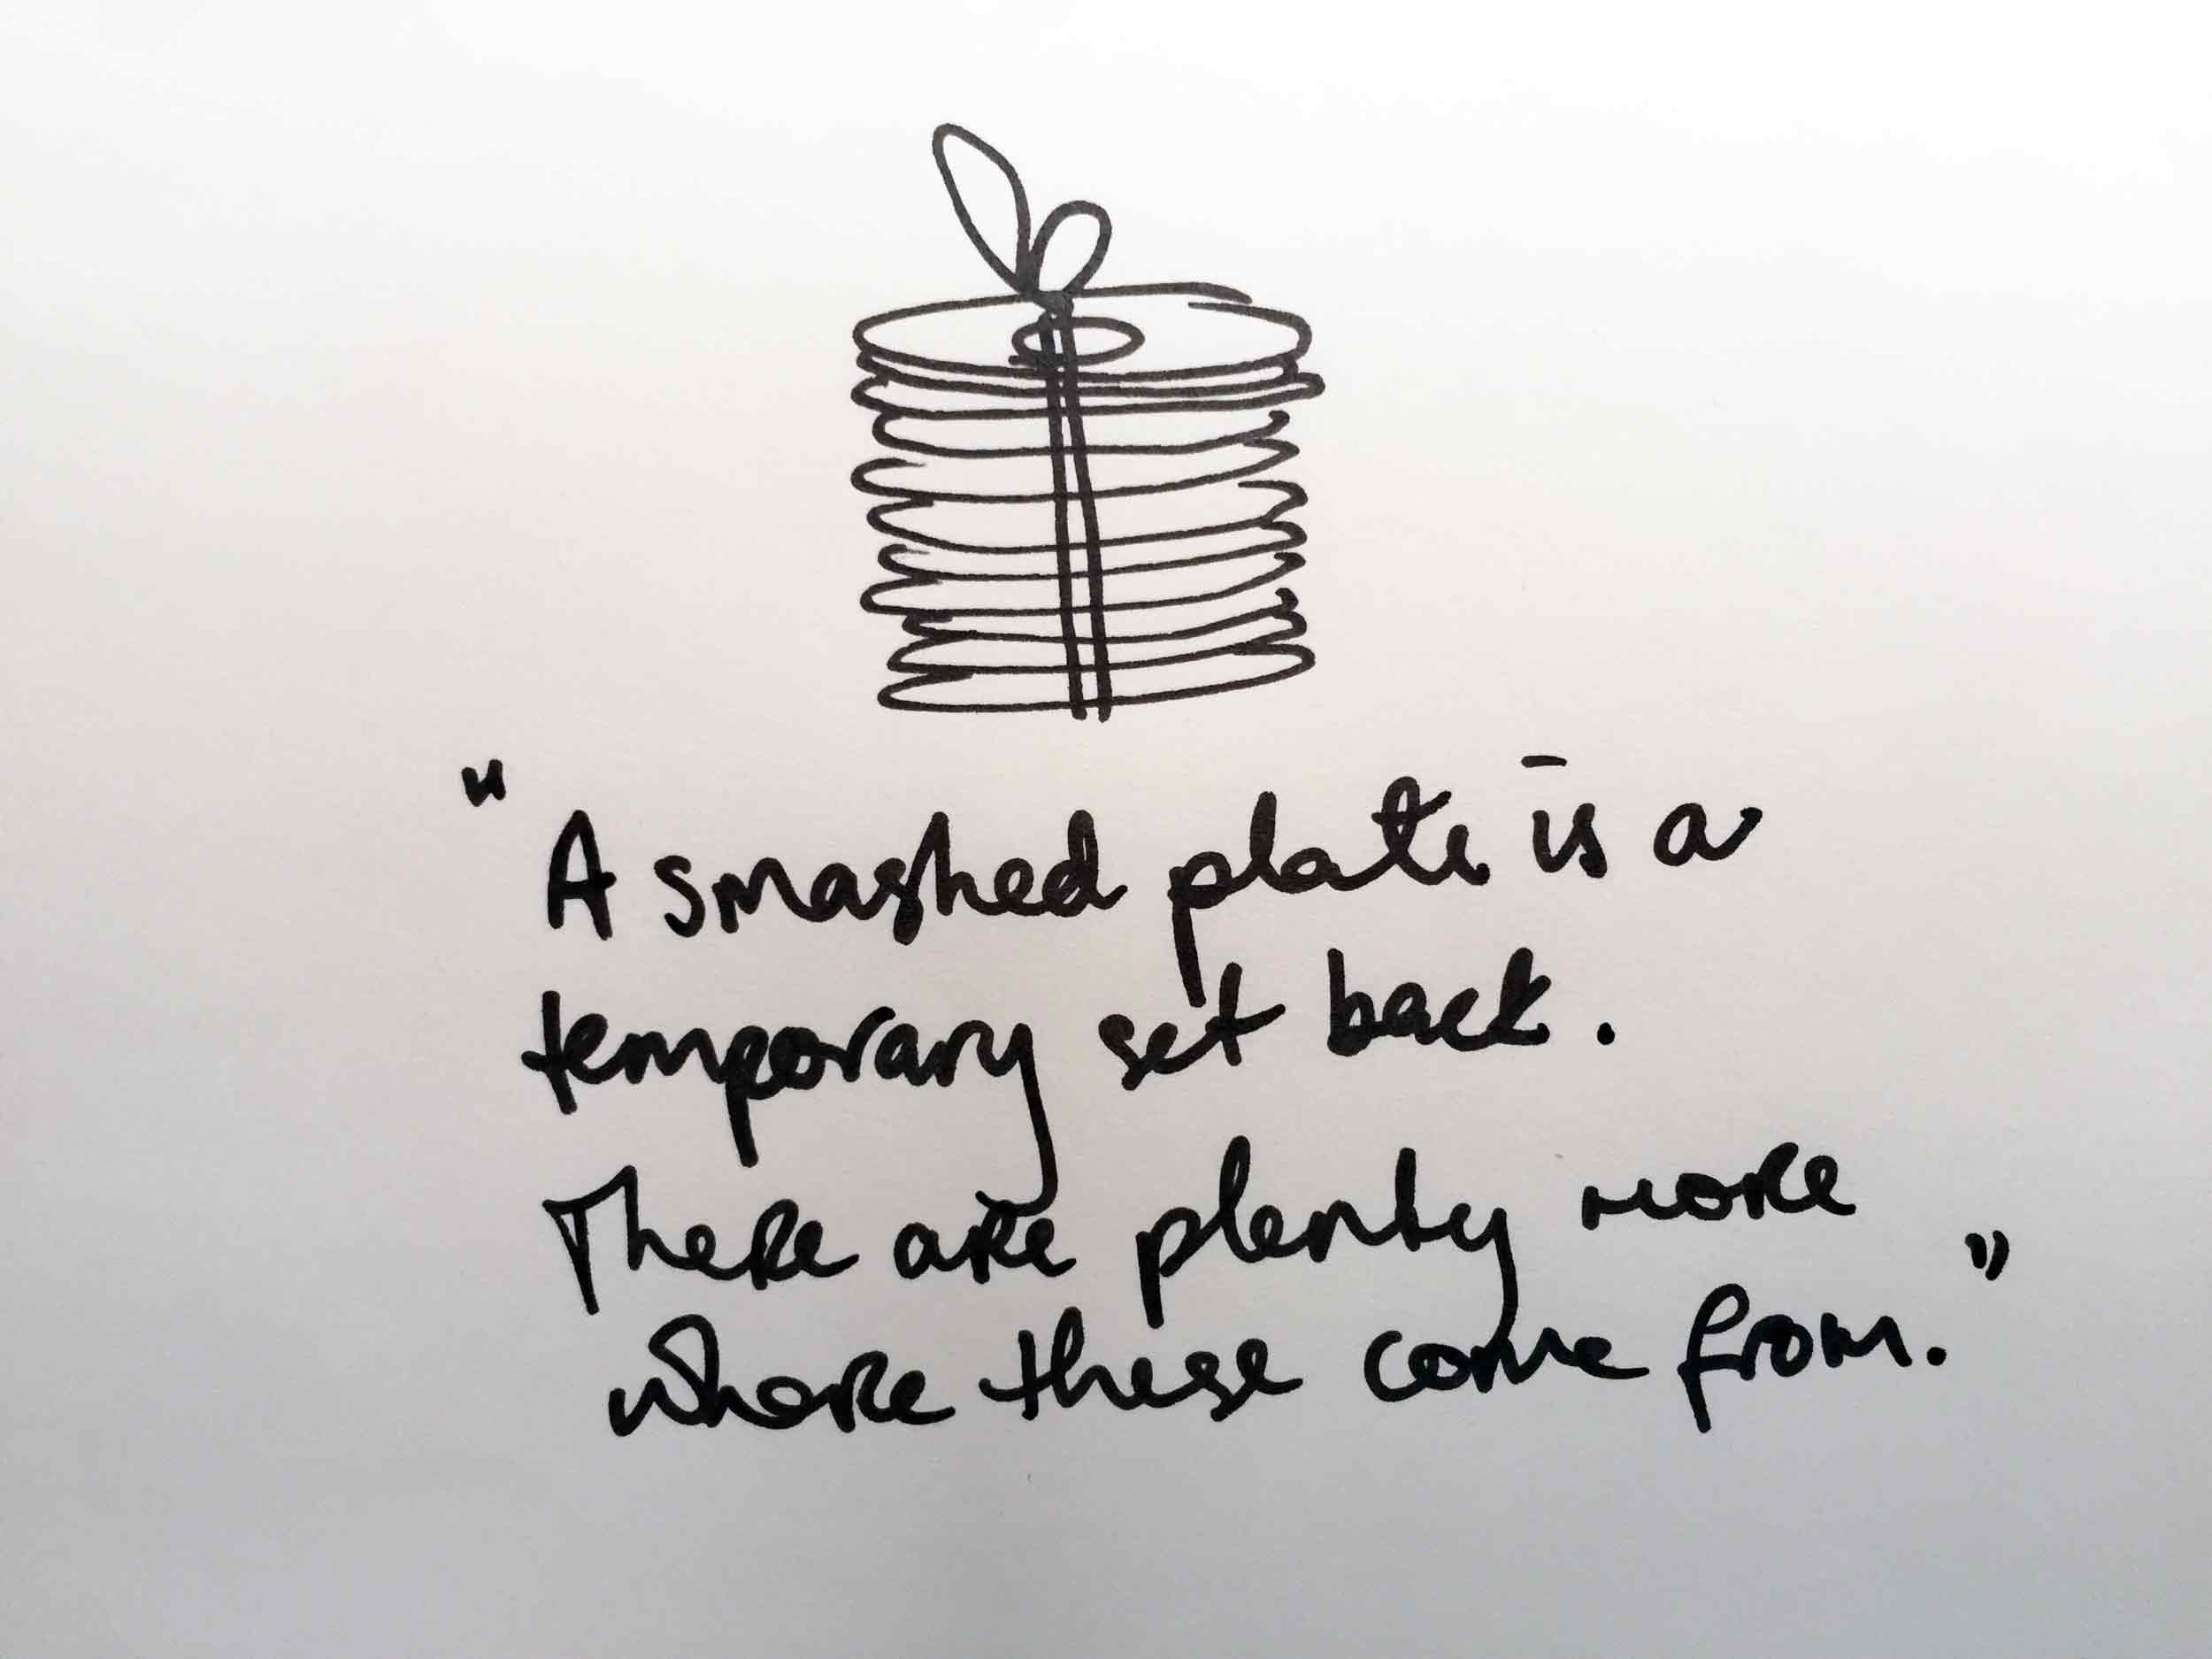 "A smashed plate is a
temporary set back.
There are plenty more
where these come from."